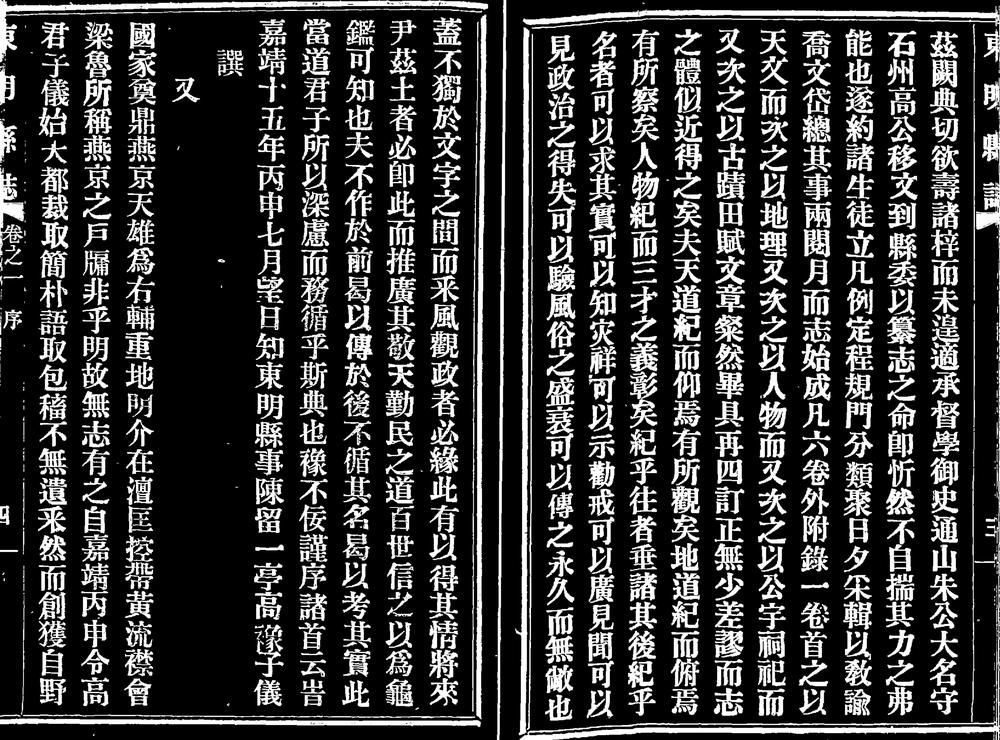 東明縣誌
三
茲闕典切欲壽諸梓而未遑適承督學御史通山朱公大名守
石州高公移文到縣委以纂志之命卽忻然不自揣其力之弗
能也遂約諸生徒立凡例定程規門分類聚日夕采輯以敎諭
喬文岱總其事兩閱月而志始成凡六卷外附錄一卷首之以
天文而次之以地理又次之以人物而又次之以公宇祠祀而
又次之以古蹟田賦文章粲然畢具再四訂正無少差謬而志
之體似近得之矣夫天道紀而仰焉有所觀矣地道紀而俯焉
有所察矣人物紀而三才之義彰矣紀乎往者垂諸其後紀乎
名者可以求其實可以知灾祥可以示勸戒可以廣見聞可以
見政治之得失可以驗風俗之盛衰可以傳之永久而無斁也
蓋不獨於文字之間而釆風觀政者必緣此有以得其情將來
尹茲土者必卽此而推廣其敬天勤民之道百世信之以爲龜
鑑可知也夫不作於前曷以傳於後不循其名曷以考其實此
當道君子所以深慮而務循乎斯典也豫不佞謹序諸首云旹
嘉靖十五年丙申七月望日知東明縣事陳留一亭高豫子儀
譔
又
國家奠鼎燕京天雄爲右輔重地明介在澶匡控帶黃流襟會
梁魯所稱燕京之戶牖非乎明故無志有之自嘉靖丙申令高
君子儀始大都裁取簡朴語取包稸不無遺釆然而創獲自野
東明縣志
卷之一
序
四